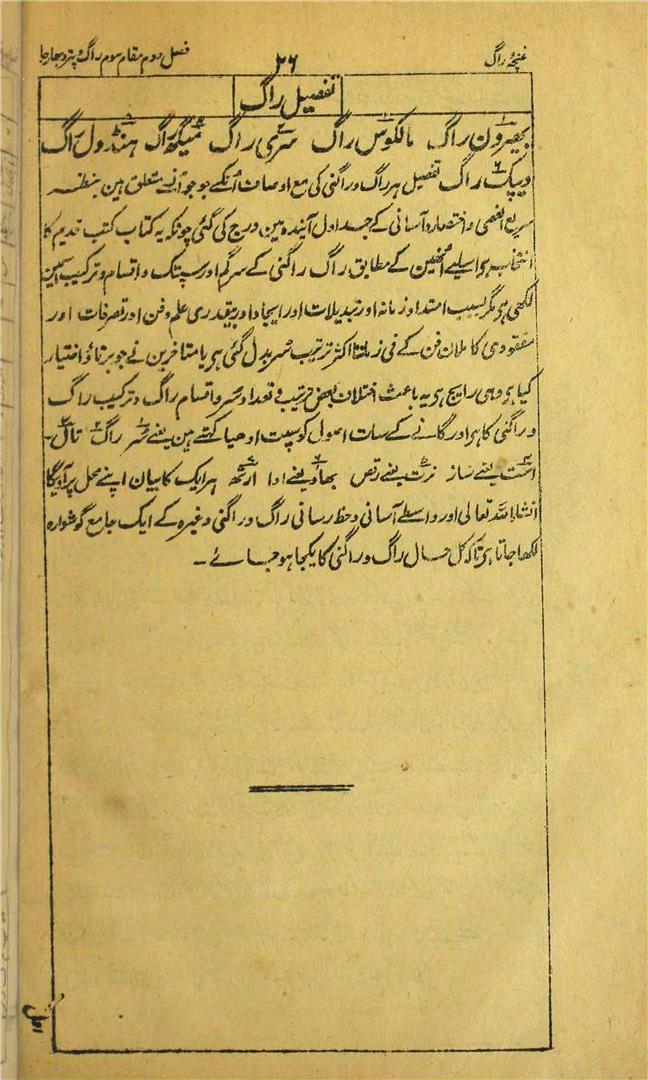 غنچۂ راگ
۲۶
فصل دوم مقام سوم راگ و پتر و بھارجا
تفصیل راگ
بھیرون راگ مالکوس راگ سری راگ میگھ راگ ہنڈول راگ
دیپک راگ تفصیل ہر راگ و راگنی کی مع اوصاف اُنکے جو جو اُنسے متعلق ہین بنظر
سریع الفہمی و اختصار و آسانی کے جدول آیندہ مین درج کی گئی چونکہ یہ کتاب کتب قدیم کا
انتخاب ہی اسلیے اُنھین کے مطابق راگ راگنی کے سرگم اور سپتک و اقسام و ترکیب سہین
لکھی ہی مگر بسبب امتداد زمانہ اور تبدیلات اور ایجاد اور بیقدری علم و فن اور تصرفات اور
مفقودی کاملان فن کے فی زماننا اکثر ترتیب سُر بدل گئی ہی یا متاخرین نے جو برتاؤ اختیار
کیا ہو وہی رایج ہی یہ باعث اختلاف بعض ترتیب و تعداد سُر و اقسام راگ و ترکیب راگ
و راگنی کا ہی اور گانے کے سات اصول کو سپت ادھیا کہتے ہین یعنے سُر راگ تال
است یعنے ساز نرت یعنے رقص بھاو یعنے ادا ارتھ ہر ایک کا بیان اپنے محل پر آویگا
انشاءاللہ تعالی اور واسطے آسانی و حظ رسانی راگ و راگنی وغیرہ کے ایک جامع گوشوارہ
لکھا جاتا ہی تاکہ کل حال راگ و راگنی کا یکجا ہو جائے ۔
اول